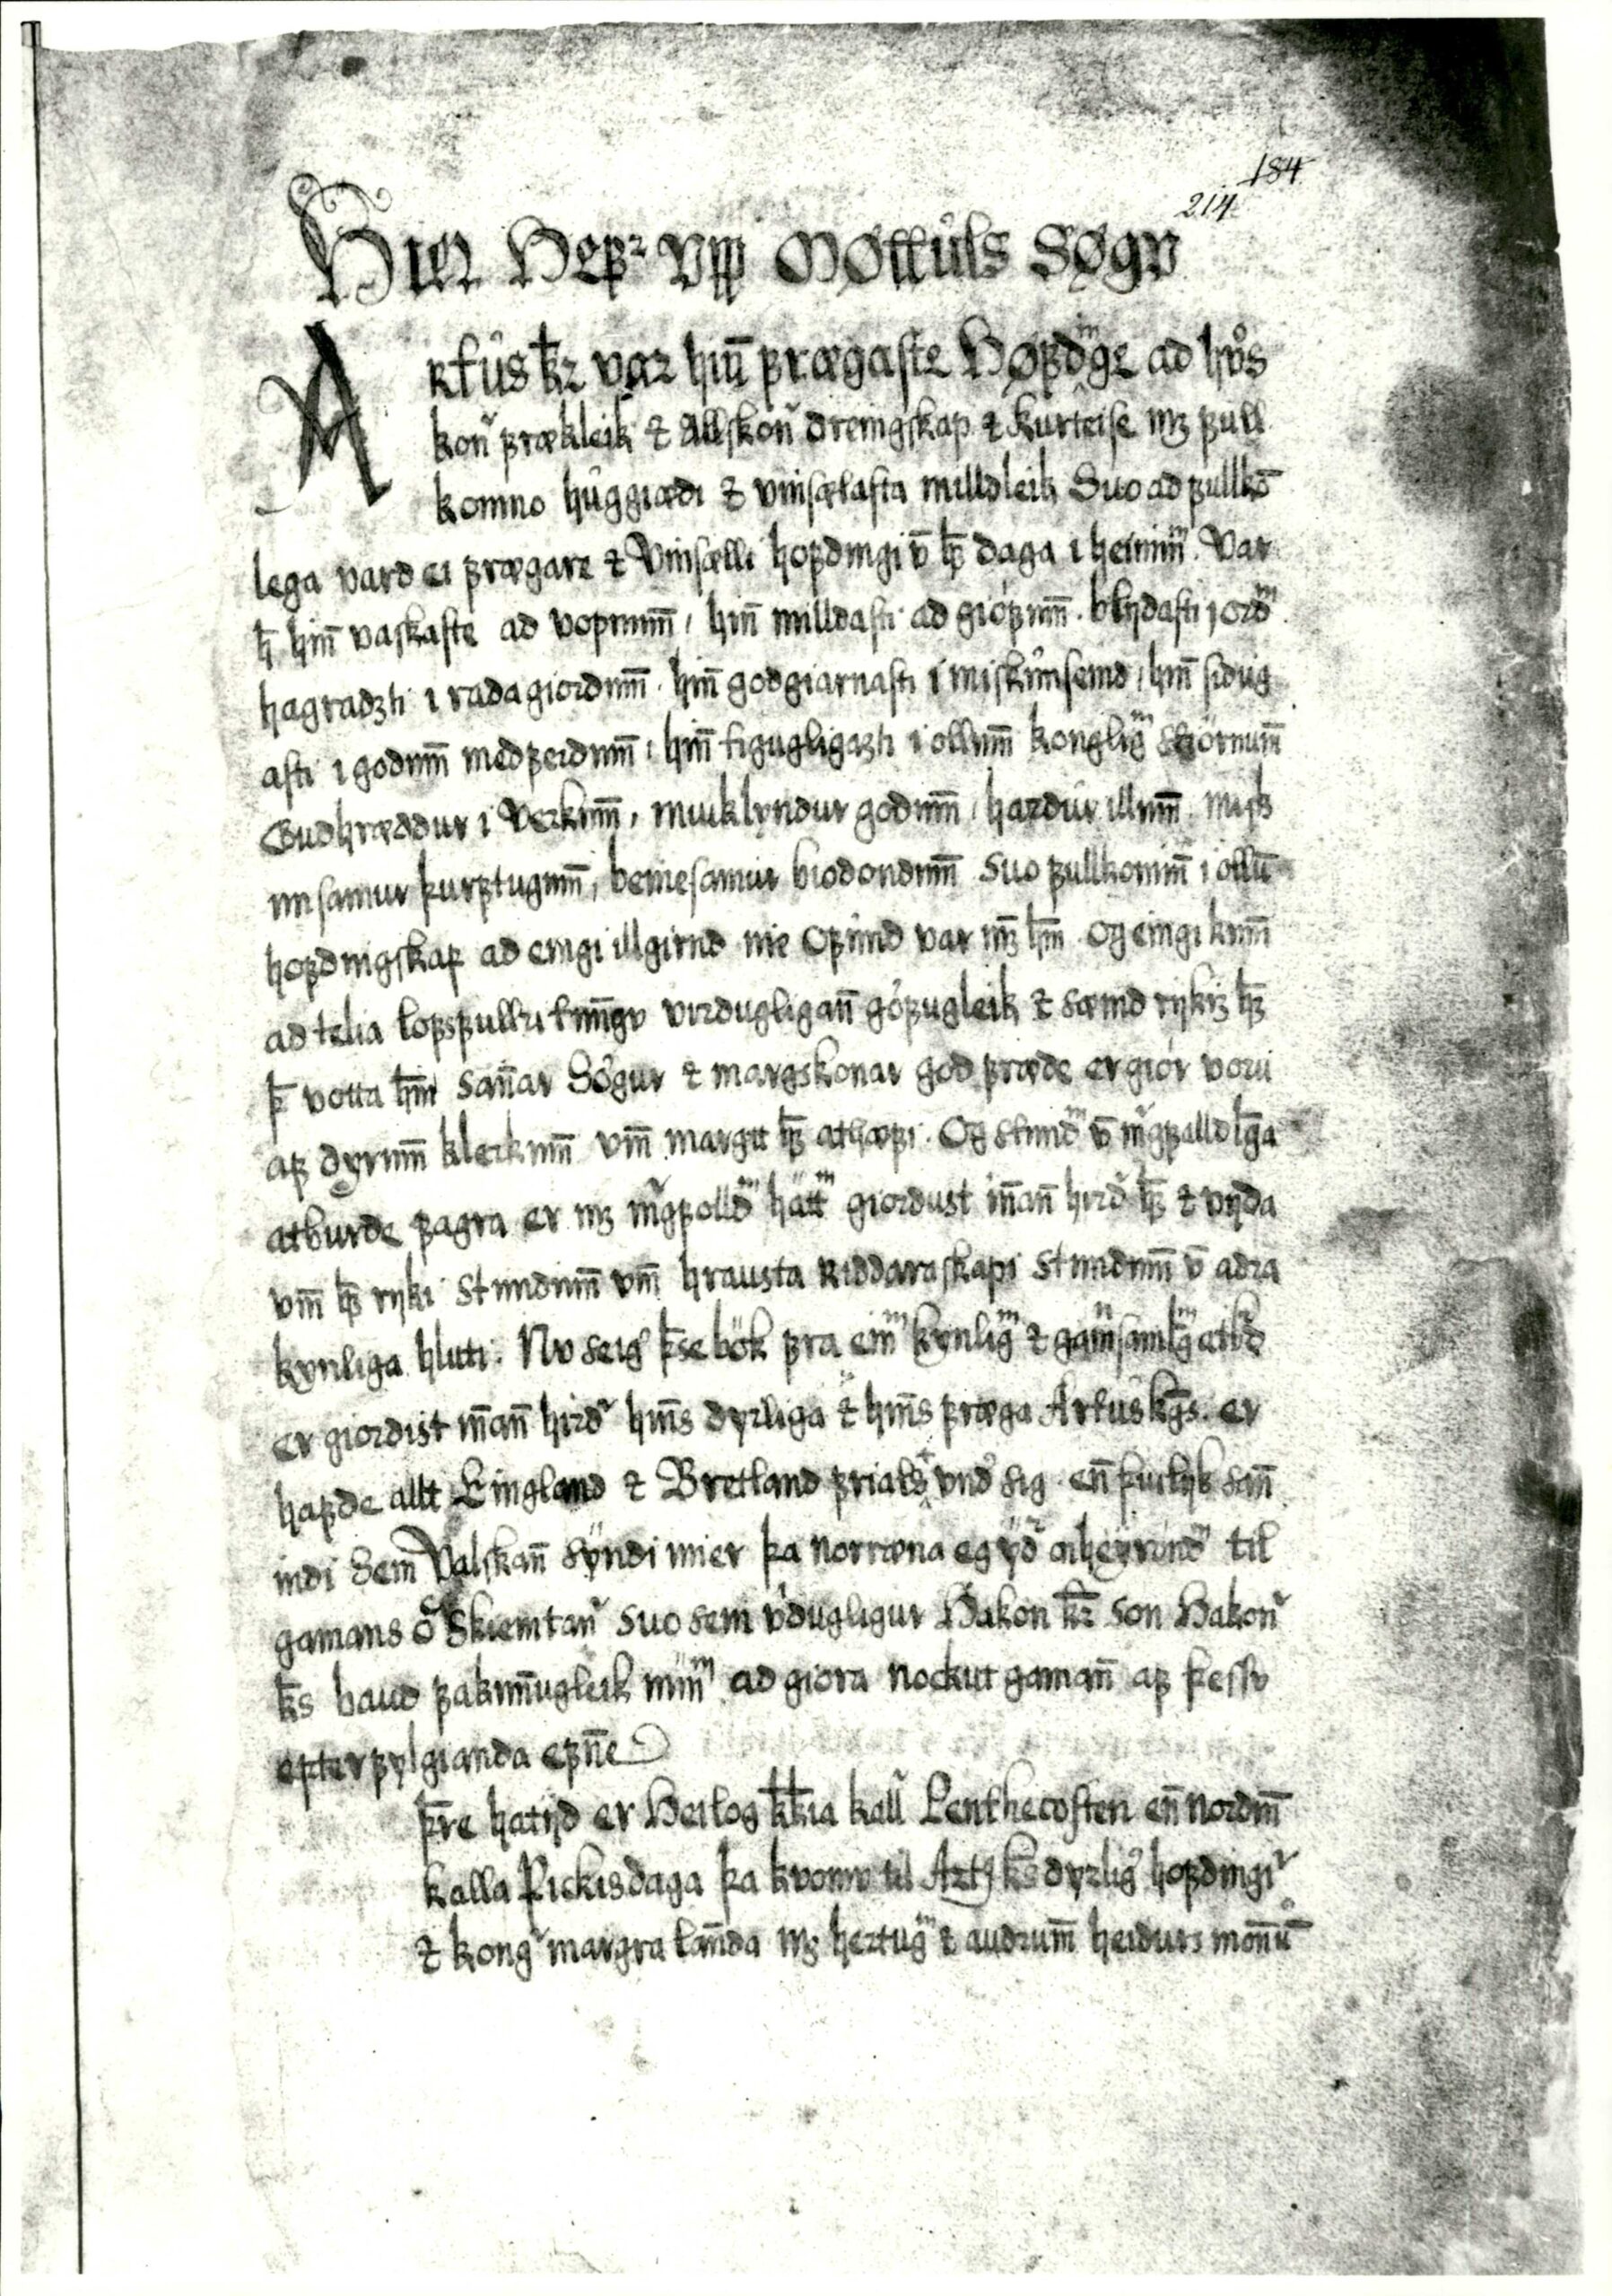 184
214
Hier Hefꝛ Vpp Mỏttuls Sỏgv
ARtus kꝛ var hin̅ frægaste Hỏfdͫge ad hv̊s
kon̆ frækleik ⁊ Allskon̆ dreingskap ⁊ kurteise mꝫ full
komno huggiædi ⁊ vinsælasta milldleik Suo ad fullko̅
lega vard ei frægare ⁊ Vinsælli hofdingi v̅ h̅s daga i heiminͫ. Var
h̅ hin̅ vaskaste ad vopnum̅, hin̅ milldasti ad giófum̅. blydasti j ordͫ
hagradzti i radagiordum̅. hin̅ godgiarnasti i miskunsemd, hin̅ sidug
asti i godum̅ medferdum̅, hin̅ tigugligazti i ollum̅ kongligͫ stiórnum̅
Gudhræddur i Verkum̅, miuklyndur godum̅, hardur illum̅. misk
unsamur þurftugum̅, beinesamur biodondum̅ Suo fullkomin̅ i ollu̅
hofdingskap ad eingi illgirnd nie ofund var mꝫ hm̅. og eingi kun̅i
ad telia lofsfullri tun̅gv virdugligan̅ gófugleik ⁊ sæmd rykis h̅s
þ̅ votta hm̅ san̅ar Sógur ⁊ margskonar god fræde er giór voru
af dyrum̅ klerkum̅ vm̅ margtt h̅s athæfi. Og stundͫ v̅ mͣgfalldl̅ga
atburde fagra er mꝫ mͣgfolldͫ háttͫ giordust in̅an̅ hird̆ h̅s ⁊ vyda
vm̅ h̅s ryki stundum̅ vm̅ hrausta Riddaraskapi stundum̅ v̅ adra
kynliga hluti. Nv seigͬ þ̅se bók fra einͫ kynligͫ ⁊ gaman̅saml̅gͫ atb̆d
er giordist in̅an̅ hird̆ hin̅s dyrliga ⁊ hin̅s fræga Artus kg̅s. er
hafde allt Eingland ⁊ Bretland frialst vndͬ sig. en̅ þuilyk san̅
indi Sem Valskan̅ syndi mier þa norræna eg ydͬ áheyrendͫ til
gamans o̅ Skiemtan̆ suo sem v̓dugligur Hakon kꝛ son Hakon̆
k̅s baud fakun̅ugleik minͫ ad giora nockut gaman̅ af þessv
epter fylgianda efn̅e
þ̅re hatyd er Heilog k̅k̅ia kall̆ Penthecosten en̅ nordm̅
kalla Pickisdaga þa kvomv til Artꝫ k̅s dyrligͬ hofdingiͬ
⁊ kong̓ margra lan̅da mꝫ hertugͫ ⁊ audrum̅ heidurs mon̅u̅